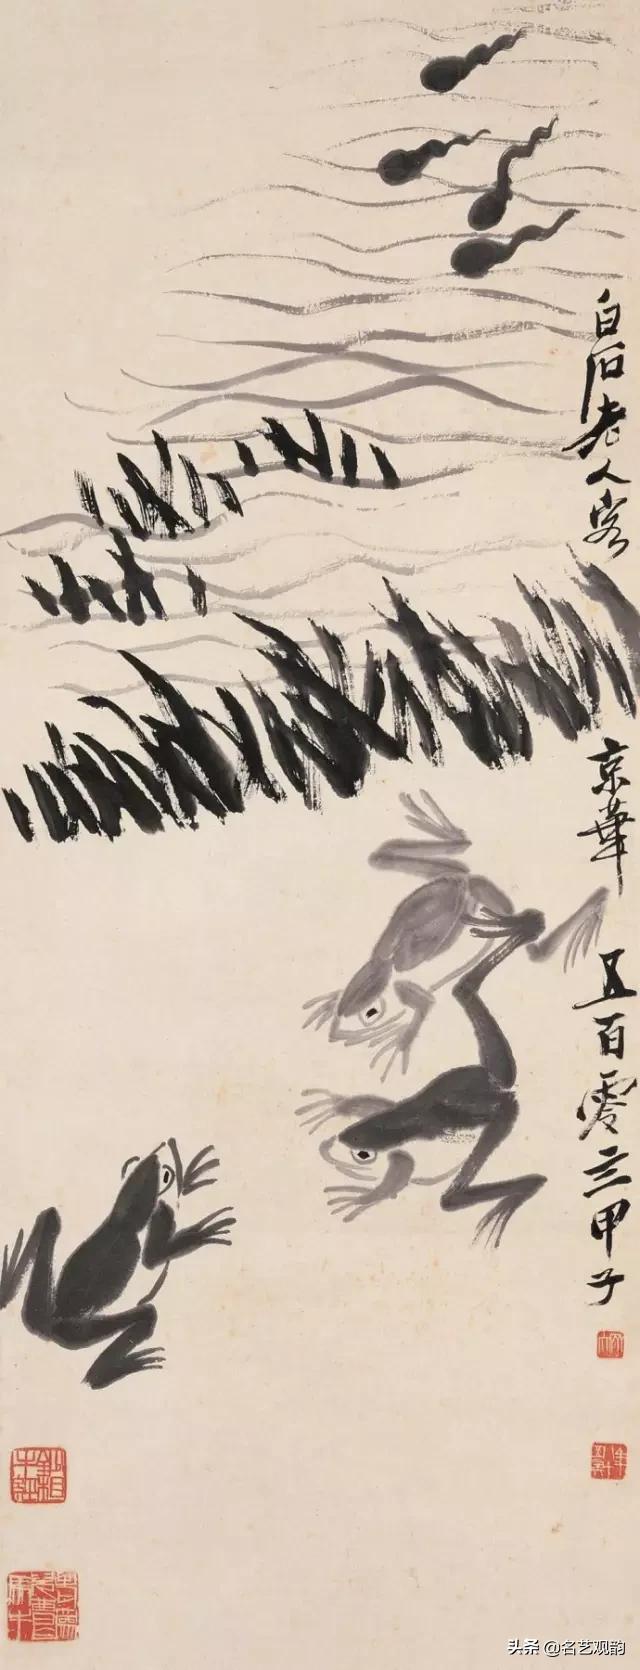 白石老人客京華五百零三甲子
头条 @名艺观韵